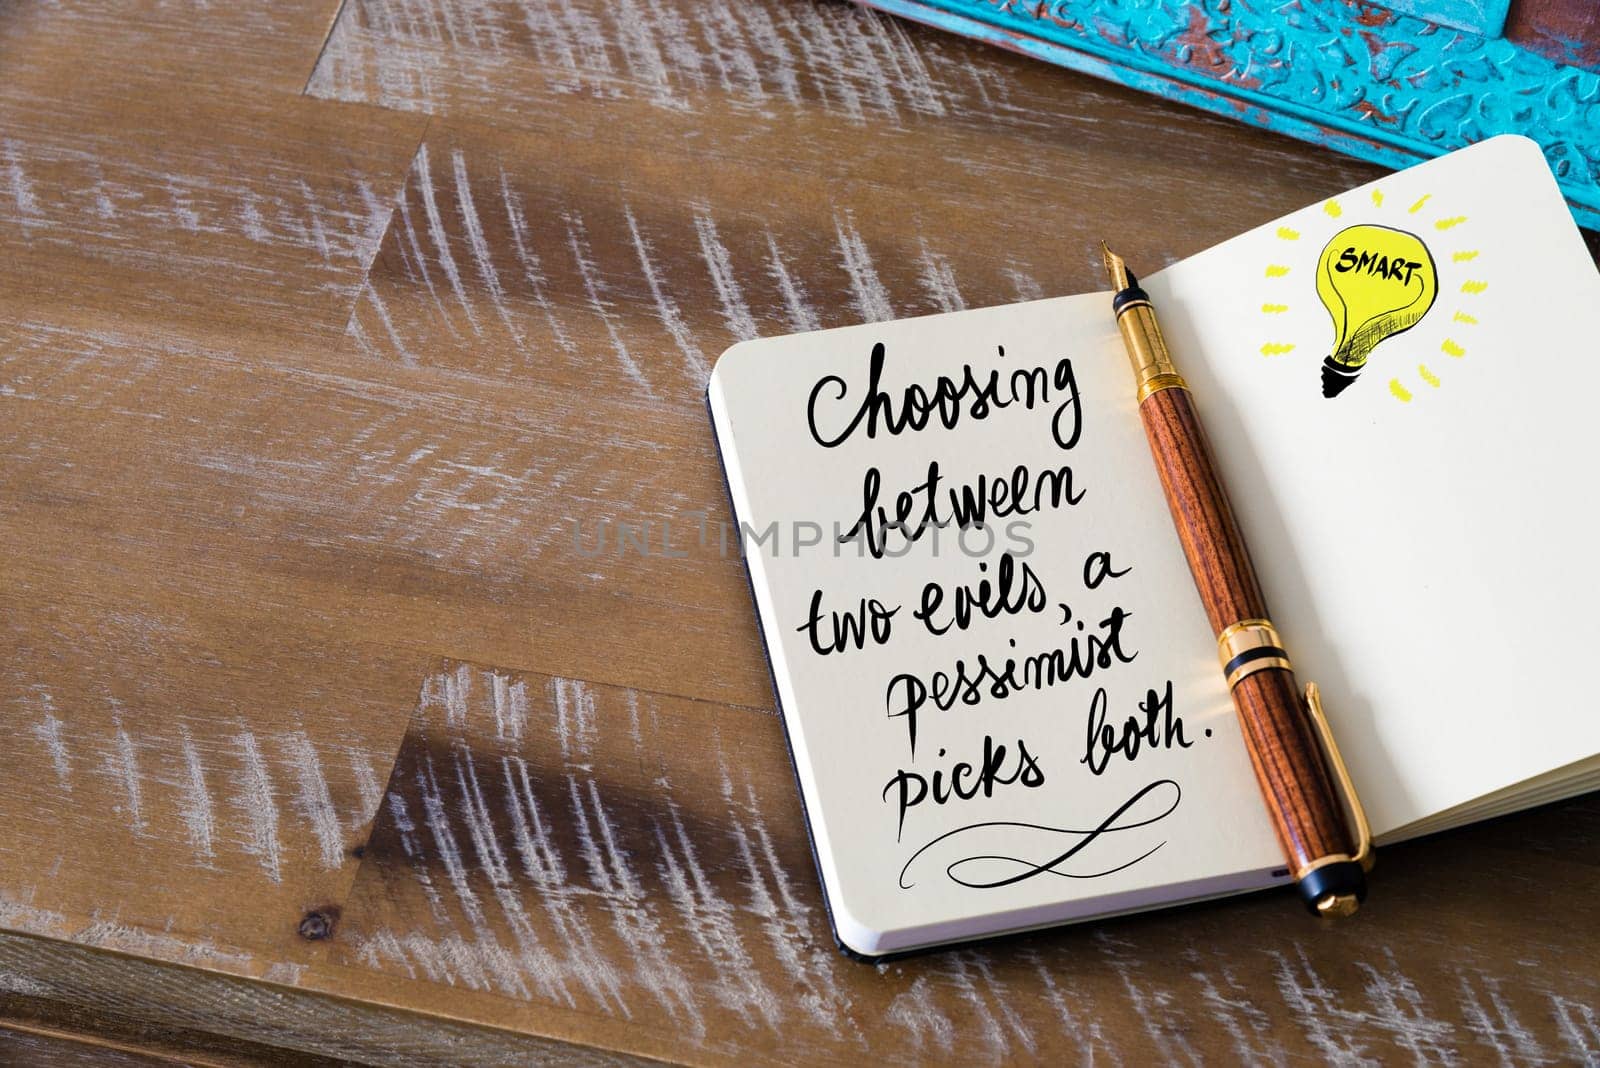 SMART
Choosing
between
two evils, a
pessimist
picks both.
UNLIMPHOTOS